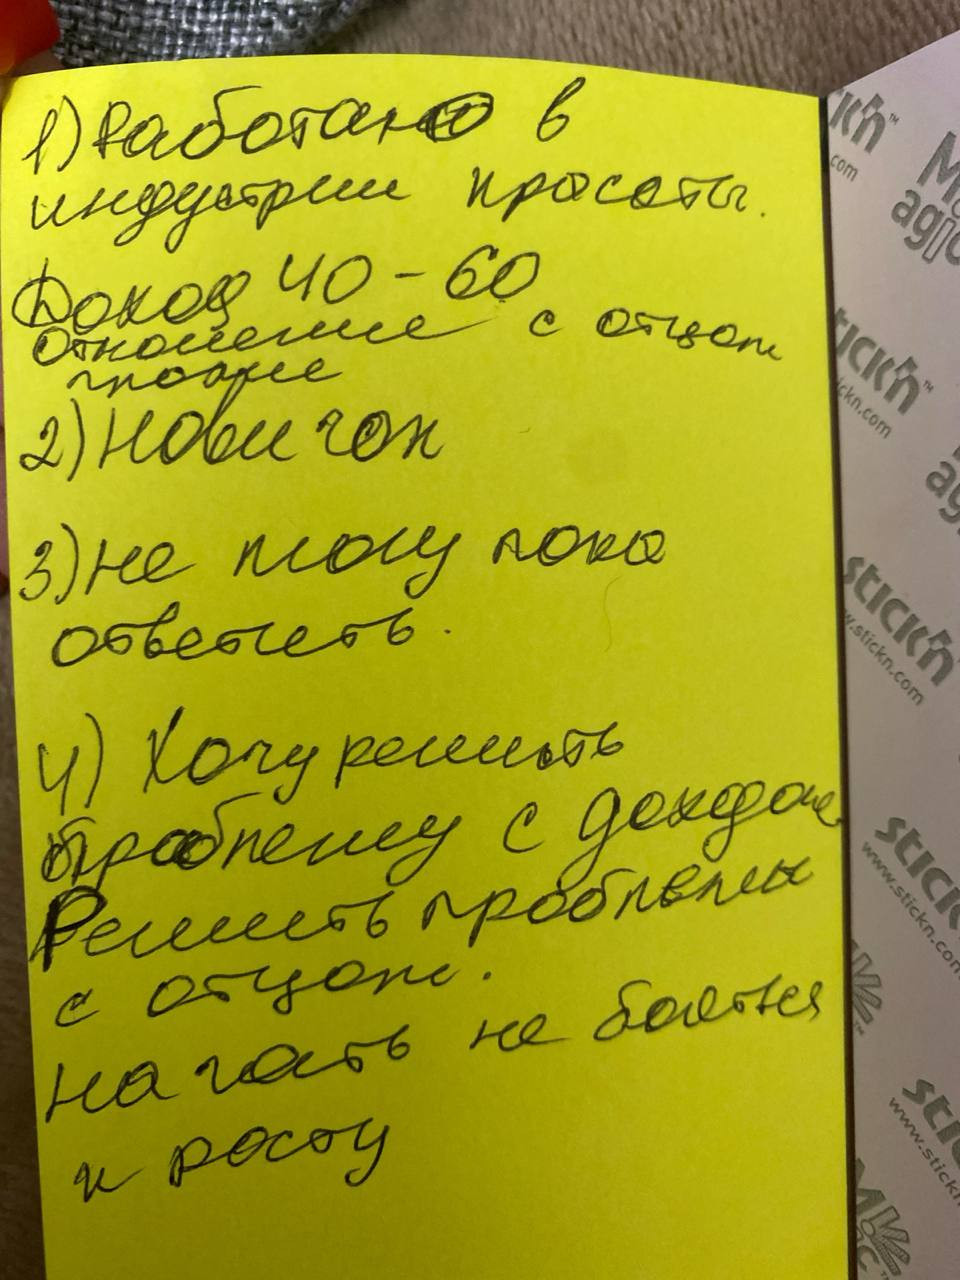 1) Работаю в
индустрии красоты.
Доход 40-60
отношение с отцом
2) Новичок
3) не могу пока
ответить.
4) Хочу решить
проблему с доходом
Решить проблемы
с отцом.
Начать не боятся
и росту
stick'n™
.com
stick'n™
stickn.com
stick'n
www.stickn.com
stick'n
www.stickn.com
stick'n
www.stickn.com